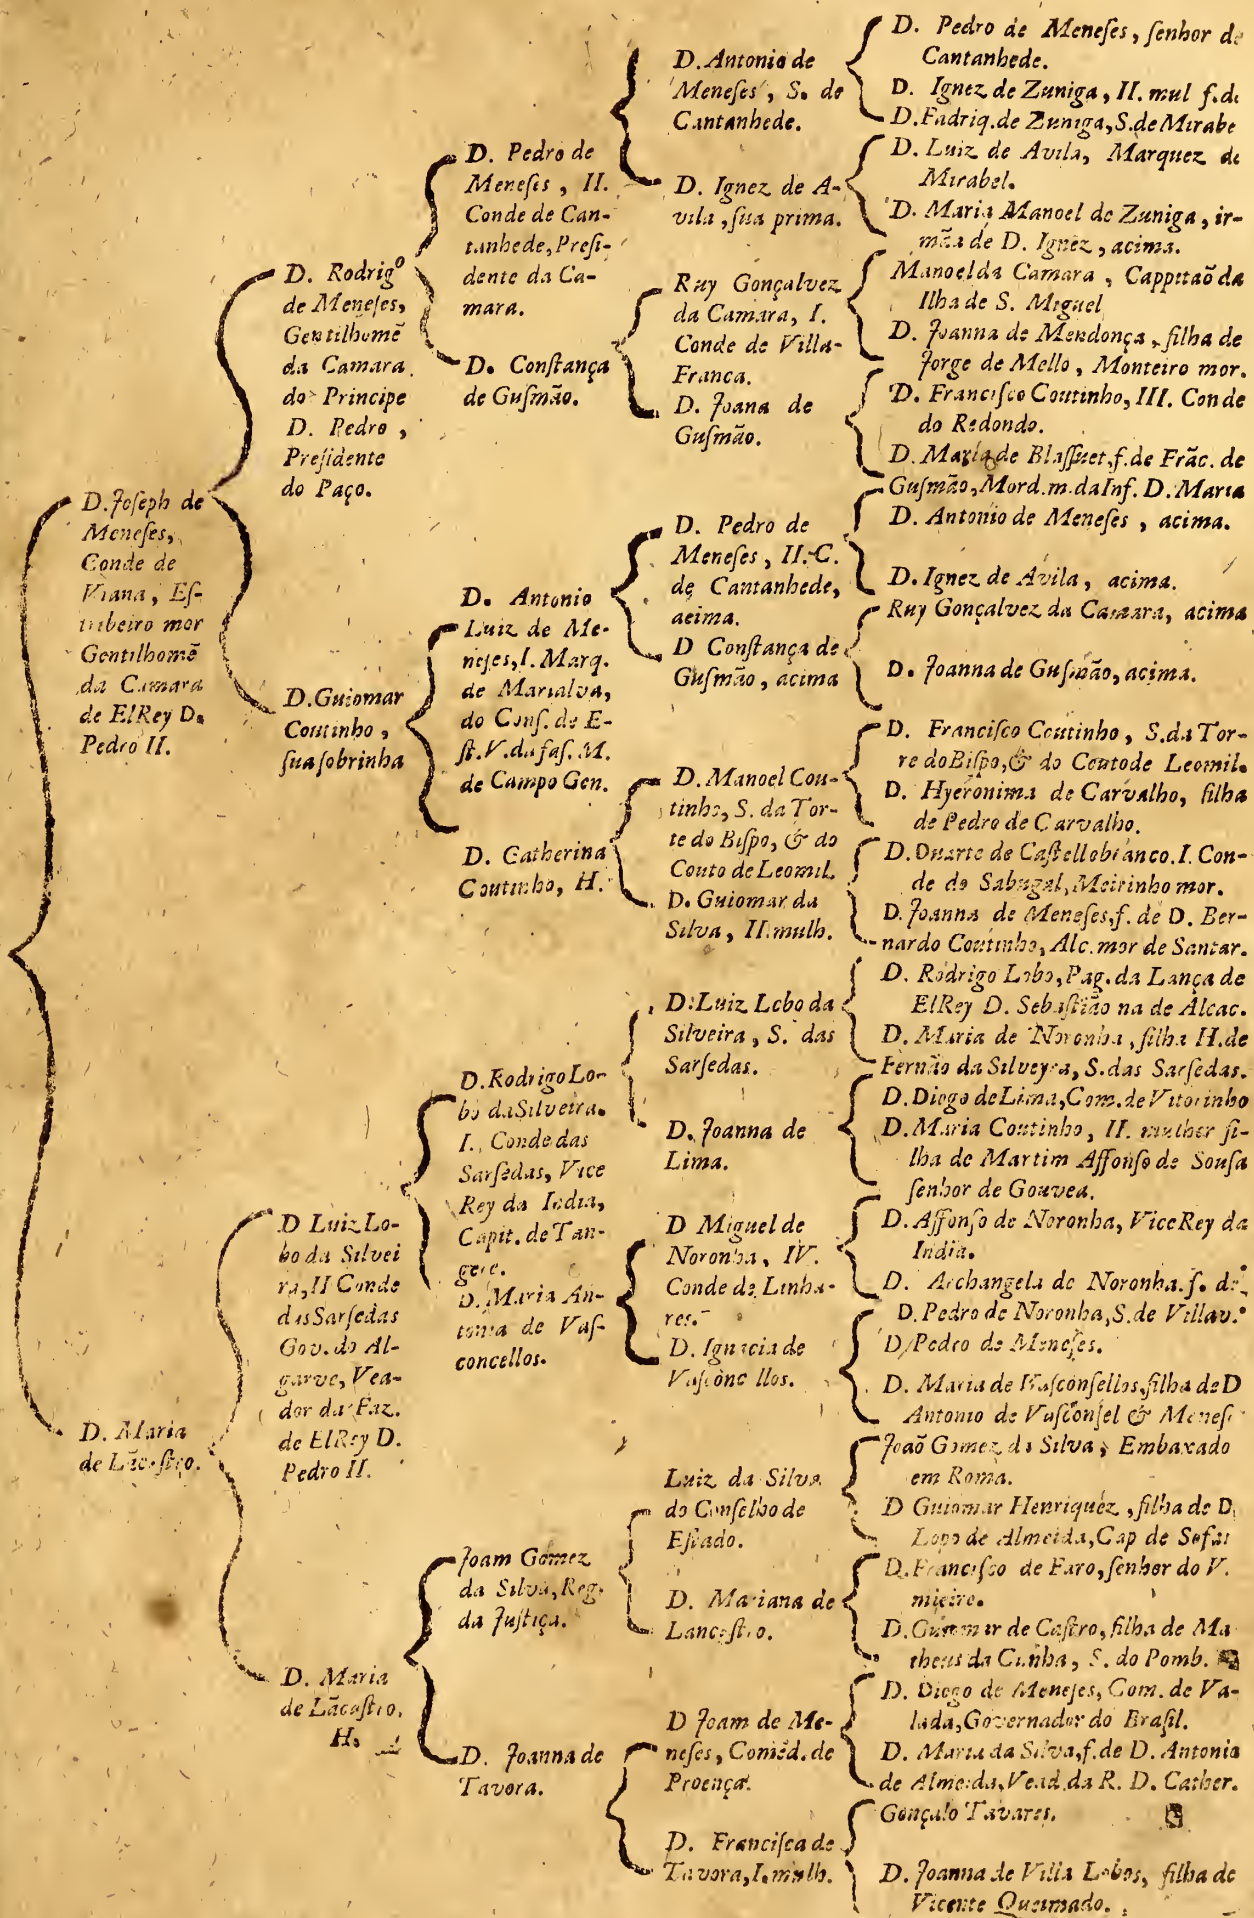 D. Joseph de
Meneſes,
Conde de
Viana, Eſ-
tribeiro mor
Gentilhomẽ
da Camara
de ElRey D.
Pedro II.
D. Maria
de Lãcaſtro.
D. Rodrigo
de Meneſes,
Gentilhomẽ
da Camara
do Principe
D. Pedro,
Preſidente
do Paço.
D. Guiomar
Coutinho,
ſua ſobrinha
D Luiz Lo-
bo da Silvei
ra, II Conde
das Sarſedas
Gov. do Al-
garve, Vea-
dor da Faz.
de ElRey D.
Pedro II.
D. Maria
de Lãcaſtro,
H.
D. Pedro de
Meneſes, II.
Conde de Can-
tanhede, Preſi-
dente da Ca-
mara.
D. Conſtança
de Guſmão.
D. Antonio
Luiz de Me-
neſes, I. Marq.
de Marialva,
do Conſ. de E-
ſt. V. da faſ. M.
de Campo Gen.
D. Catherina
Coutinho, H.
D. Rodrigo Lo-
bo da Silveira.
I. Conde das
Sarſedas, Vice
Rey da India,
Capit. de Tan-
gere.
D. Maria An-
tonia de Vaſ-
concellos.
Joam Gomez
da Silva, Reg.
da Juſtiça.
D. Joanna de
Tavora.
D. Antonio de
Meneſes, S. de
Cantanhede.
D. Ignez de A-
vila, ſua prima.
Ruy Gonçalvez
da Camara, I.
Conde de Villa-
Franca.
D. Joana de
Guſmão.
D. Pedro de
Meneſes, II. C.
de Cantanhede,
acima.
D Conſtança de
Guſmão, acima
D. Manoel Cou-
tinho, S. da Tor-
re do Biſpo, & do
Couto de Leomil.
D. Guiomar da
Silva, II. mulh.
D. Luiz Lobo da
Silveira, S. das
Sarſedas.
D. Joanna de
Lima.
D Miguel de
Noronha, IV.
Conde de Linha-
res.
D. Ignacia de
Vaſconcellos.
Luiz da Silva
do Conſelho de
Eſtado.
D. Mariana de
Lancaſtro.
D Joam de Me-
neſes, Comẽd. de
Proença.
D. Franciſca de
Tavora, I. mulh.
D. Pedro de Meneſes, ſenhor de
Cantanhede.
D. Ignez de Zuniga, II. mul f. de
D. Fadriq. de Zuniga, S. de Mirabe
D. Luiz de Avila, Marquez de
Mirabel.
D. Maria Manoel de Zuniga, ir-
mãa de D. Ignez, acima.
Manoel da Camara, Cappitaõ da
Ilha de S. Miguel
D. Joanna de Mendonça, filha de
Jorge de Mello, Monteiro mor.
D. Franciſco Coutinho, III. Conde
do Redondo.
D. Maria de Blaſſuet, f. de Frãc. de
Guſmão, Mord. m. da Inf. D. Maria
D. Antonio de Meneſes, acima.
D. Ignez de Avila, acima.
Ruy Gonçalvez da Camara, acima
D. Joanna de Guſmão, acima.
D. Franciſco Coutinho, S. da Tor-
re do Biſpo, & do Couto de Leomil.
D. Hyeronima de Carvalho, filha
de Pedro de Carvalho.
D. Duarte de Caſtellobranco. I. Con-
de do Sabugal, Meirinho mor.
D. Joanna de Meneſes, f. de D. Ber-
nardo Coutinho, Alc. mor de Santar.
D. Rodrigo Lobo, Pag. da Lança de
ElRey D. Sebaſtião na de Alcac.
D. Maria de Noronha, filha H. de
Fernão da Silveyra, S. das Sarſedas.
D. Diogo de Lima, Com. de Vitorinho
D. Maria Coutinho, II. mulher fi-
lha de Martim Affonſo de Souſa
ſenhor de Gouvea.
D. Affonſo de Noronha, Vice Rey da
India.
D. Archangela de Noronha. f. de
D. Pedro de Noronha, S. de Villav.
D. Pedro de Meneſes.
D. Maria de Vaſconſellos, filha de D
Antonio de Vaſconſel & Meneſ
Joaõ Gomez da Silva, Embaxado
em Roma.
D Guiomar Henriquez, filha de D.
Lopo de Almeida, Cap de Sofal
D. Franciſco de Faro, ſenhor do V.
mieiro.
D. Guiomar de Caſtro, filha de Ma
theus da Cunha, S. do Pomb.
D. Diogo de Meneſes, Com. de Va-
lada, Governador do Braſil.
D. Maria da Silva, f. de D. Antonio
de Almeida, Vead. da R. D. Cather.
Gonçalo Tavares.
D. Joanna de Villa Lobos, filha de
Vicente Queimado.